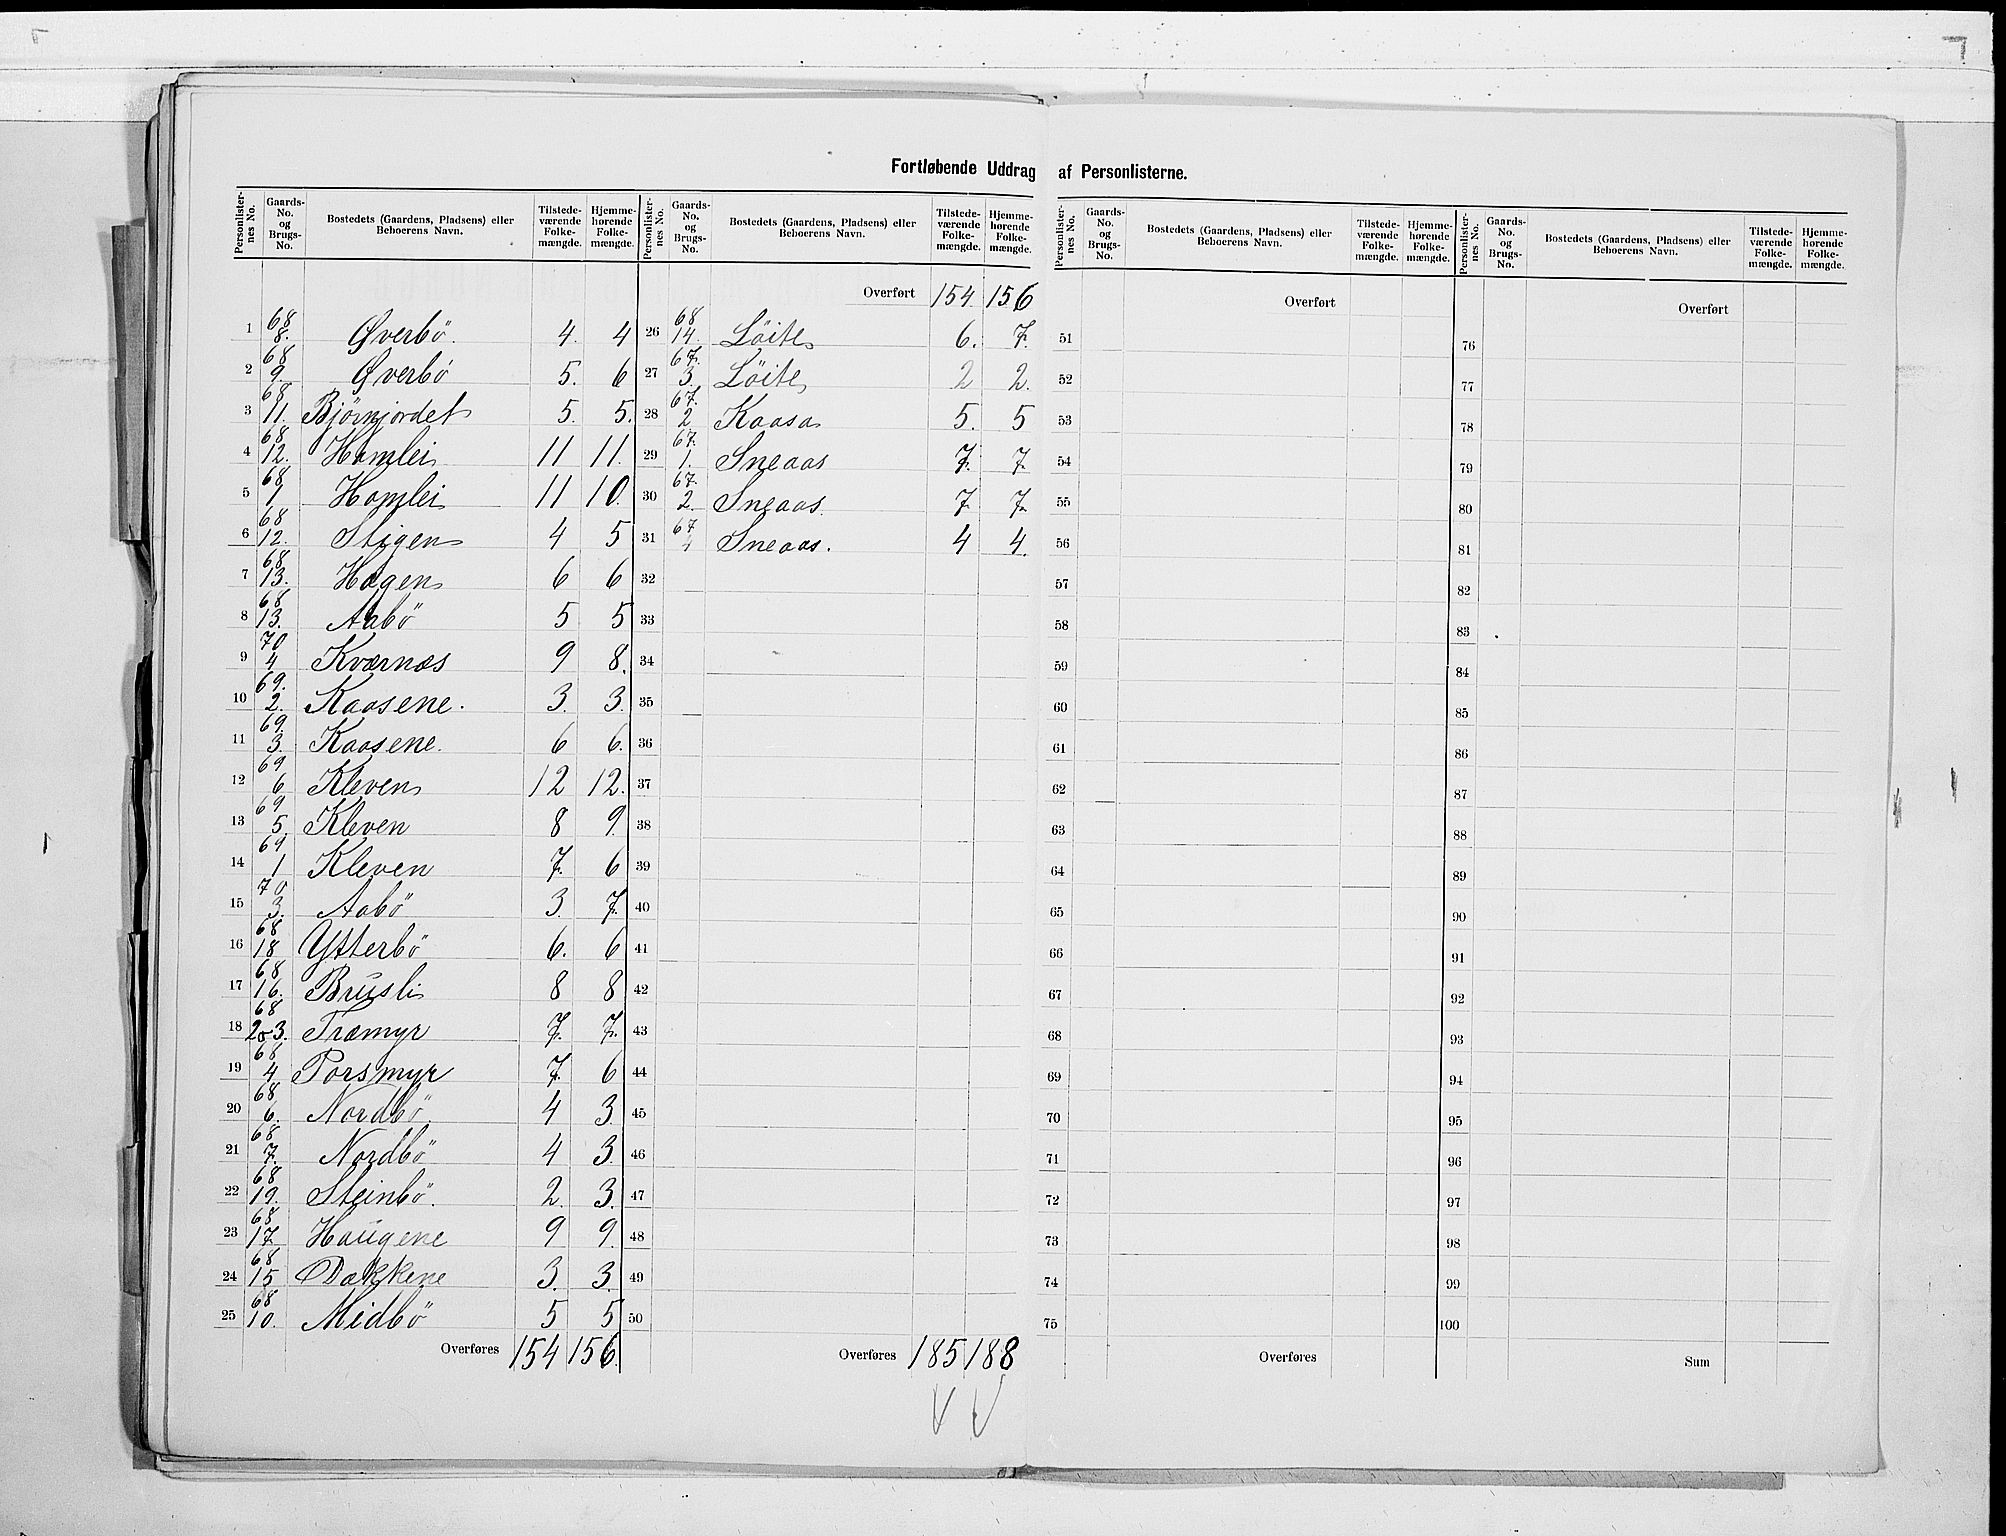 Fortløbende Uddrag af Personlisterne.
Personlister-nes No. Gaards-No. og Brugs-No. Bostedets (Gaardens, Pladsens) eller Beboerens Navn. Tilstede-værende Folke-mængde. Hjemme-hørende Folke-mængde.
1 68 8. Øverbö. 4. 4
2 68 9. Øverbö 5. 6
3 68 11. Björnjordet 5. 5.
4 68 12. Hamlei 11 11.
5 68 1 Hamlei 11 10.
6 68 12. Stigen 4 5
7 68 13. Hagen 6 6
8 68 13. Aabö 5 5
9 70 4 Kværnæs 9 8.
10 69. 2. Kaasene. 3. 3.
11 69. 3. Kaasene. 6 6.
12 69 6 Kleven 12 12.
13 69 5. Kleven 8 9.
14 69 1 Kleven 7. 6
15 70 3. Aabö 3. 7.
16 68 18 Ytterbö 6. 6
17 68 16. Brusli 8 8
18 68 2o3. Træmyr 7. 7.
19 68 4 Porsmyr 7. 6
20 68 6. Nordbö. 4 3.
21 68 7. Nordbö 4 3.
22 68 19. Steinbö. 2. 3.
23 68 17. Haugene 9 9.
24 68 15 Dækkene 3. 3.
25 68 10. Midbö 5 5
Overføres 154 156.
Personlister-nes No. Gaards-No. og Brugs-No. Bostedets (Gaardens, Pladsens) eller Beboerens Navn. Tilstede-værende Folke-mængde. Hjemme-hørende Folke-mængde.
Overført 154. 156
26 68 14. Löite 6. 7.
27 67. 3. Löite 2 2.
28 67. 2 Kaasa 5. 5
29 67. 1. Sneaas 7. 7.
30 67. 2. Sneaas. 7. 7.
31 67 Sneaas. 4 4.
32
33
34
35
36
37
38
39
40
41
42
43
44
45
46
47
48
49
50
Overføres 185 188
Personlister-nes No. Gaards-No. og Brugs-No. Bostedets (Gaardens, Pladsens) eller Beboerens Navn. Tilstede-værende Folke-mængde. Hjemme-hørende Folke-mængde.
Overført
51
52
53
54
55
56
57
58
59
60
61
62
63
64
65
66
67
68
69
70
71
72
73
74
75
Overføres
Personlister-nes No. Gaards-No. og Brugs-No. Bostedets (Gaardens, Pladsens) eller Beboerens Navn. Tilstede-værende Folke-mængde. Hjemme-hørende Folke-mængde.
Overført
76
77
78
79
80
81
82
83
84
85
86
87
88
89
90
91
92
93
94
95
96
97
98
99
100
Sum